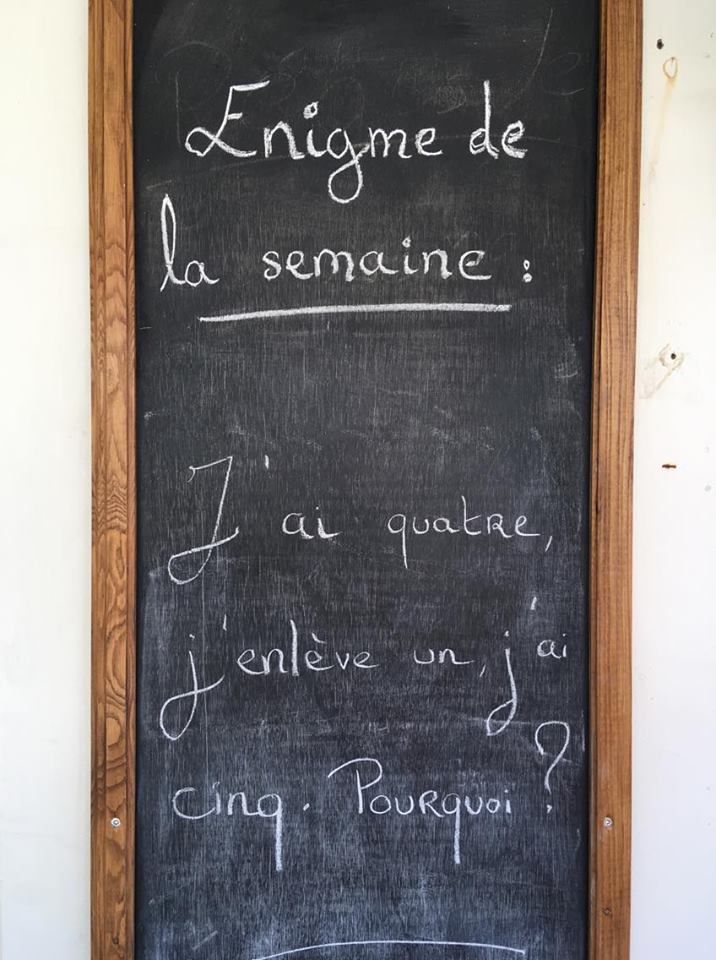 Enigme de
la semaine :
J'ai quatre,
j'enlève un, j'ai
cinq. Pourquoi ?